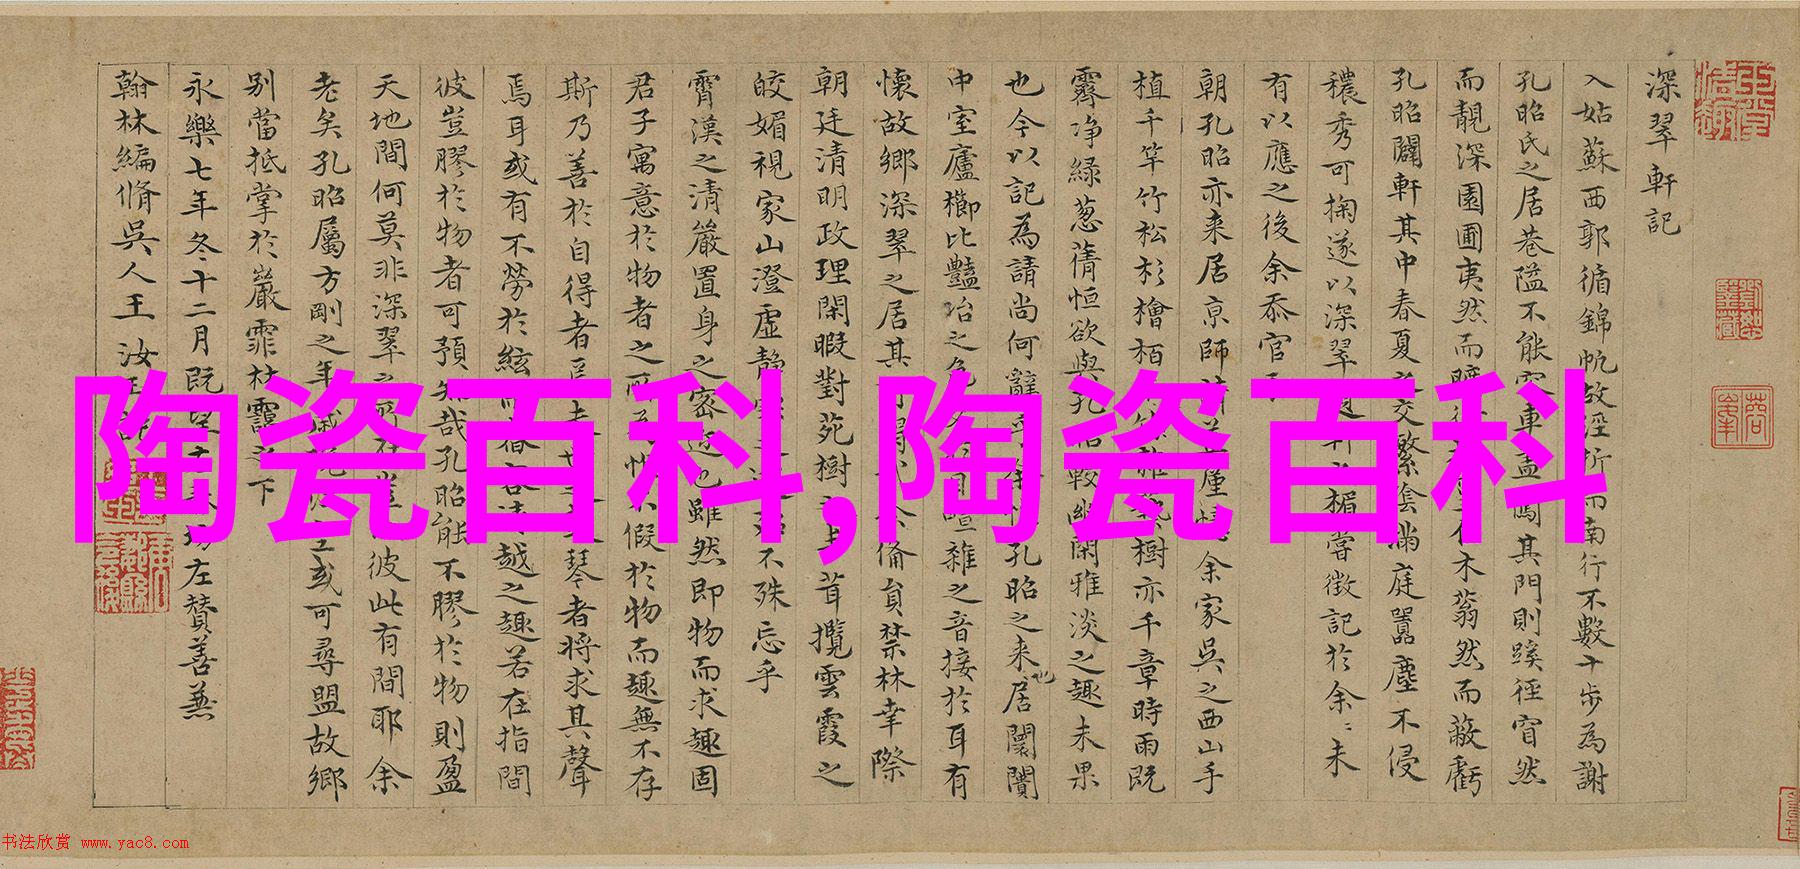 深翠軒記
入姑蘇西郭循錦帆故涇折而南行不數十步為謝
孔昭氏之居巷隘不能容車蓋闖其門則蹊徑窅然
而靚深園圃夷然而曠木蓊然而蔽虧
孔昭闢軒其中春夏之交繁陰滿庭囂塵不侵
穠秀可掬遂以深翠軒楣嘗徵記於余〻未
有以應之後余忝官
朝孔昭亦来居京師余家吳之西山手
植千竿竹松杉檜栢樹亦千章時雨既
霽净緑葱蒨恒欲與孔昭較幽閑雅淡之趣未果
也今以記為請尚何辭乎孔昭之来居也闤闠
中室廬櫛比豔冶之色喧雜之音接於耳有
懷故鄉深翠之居其倫負禁林幸際
朝廷清明政理閑暇對苑樹之攬雲霞之
皎媚視家山澄虚静不殊忘乎
霄漢之清嚴置身之密邇也雖然即物而求趣固
君子寓意於物者之所不假於物而趣無不存
斯乃善於自得者琴者將求其聲
焉耳或有不勞於絃越之趣若在指間
彼豈膠於物者可預知哉孔昭能不膠於物則盈
天地間何莫非深翠之彼此有間耶余
老矣孔昭屬方剛之年或可尋盟故鄉
别當抵掌於巖霏林靄之下
永樂七年冬十二月既望左賛善兼
翰林編脩吳人王汝玉記
陶瓷百科,陶瓷百科
书法欣赏 www.yac8.com